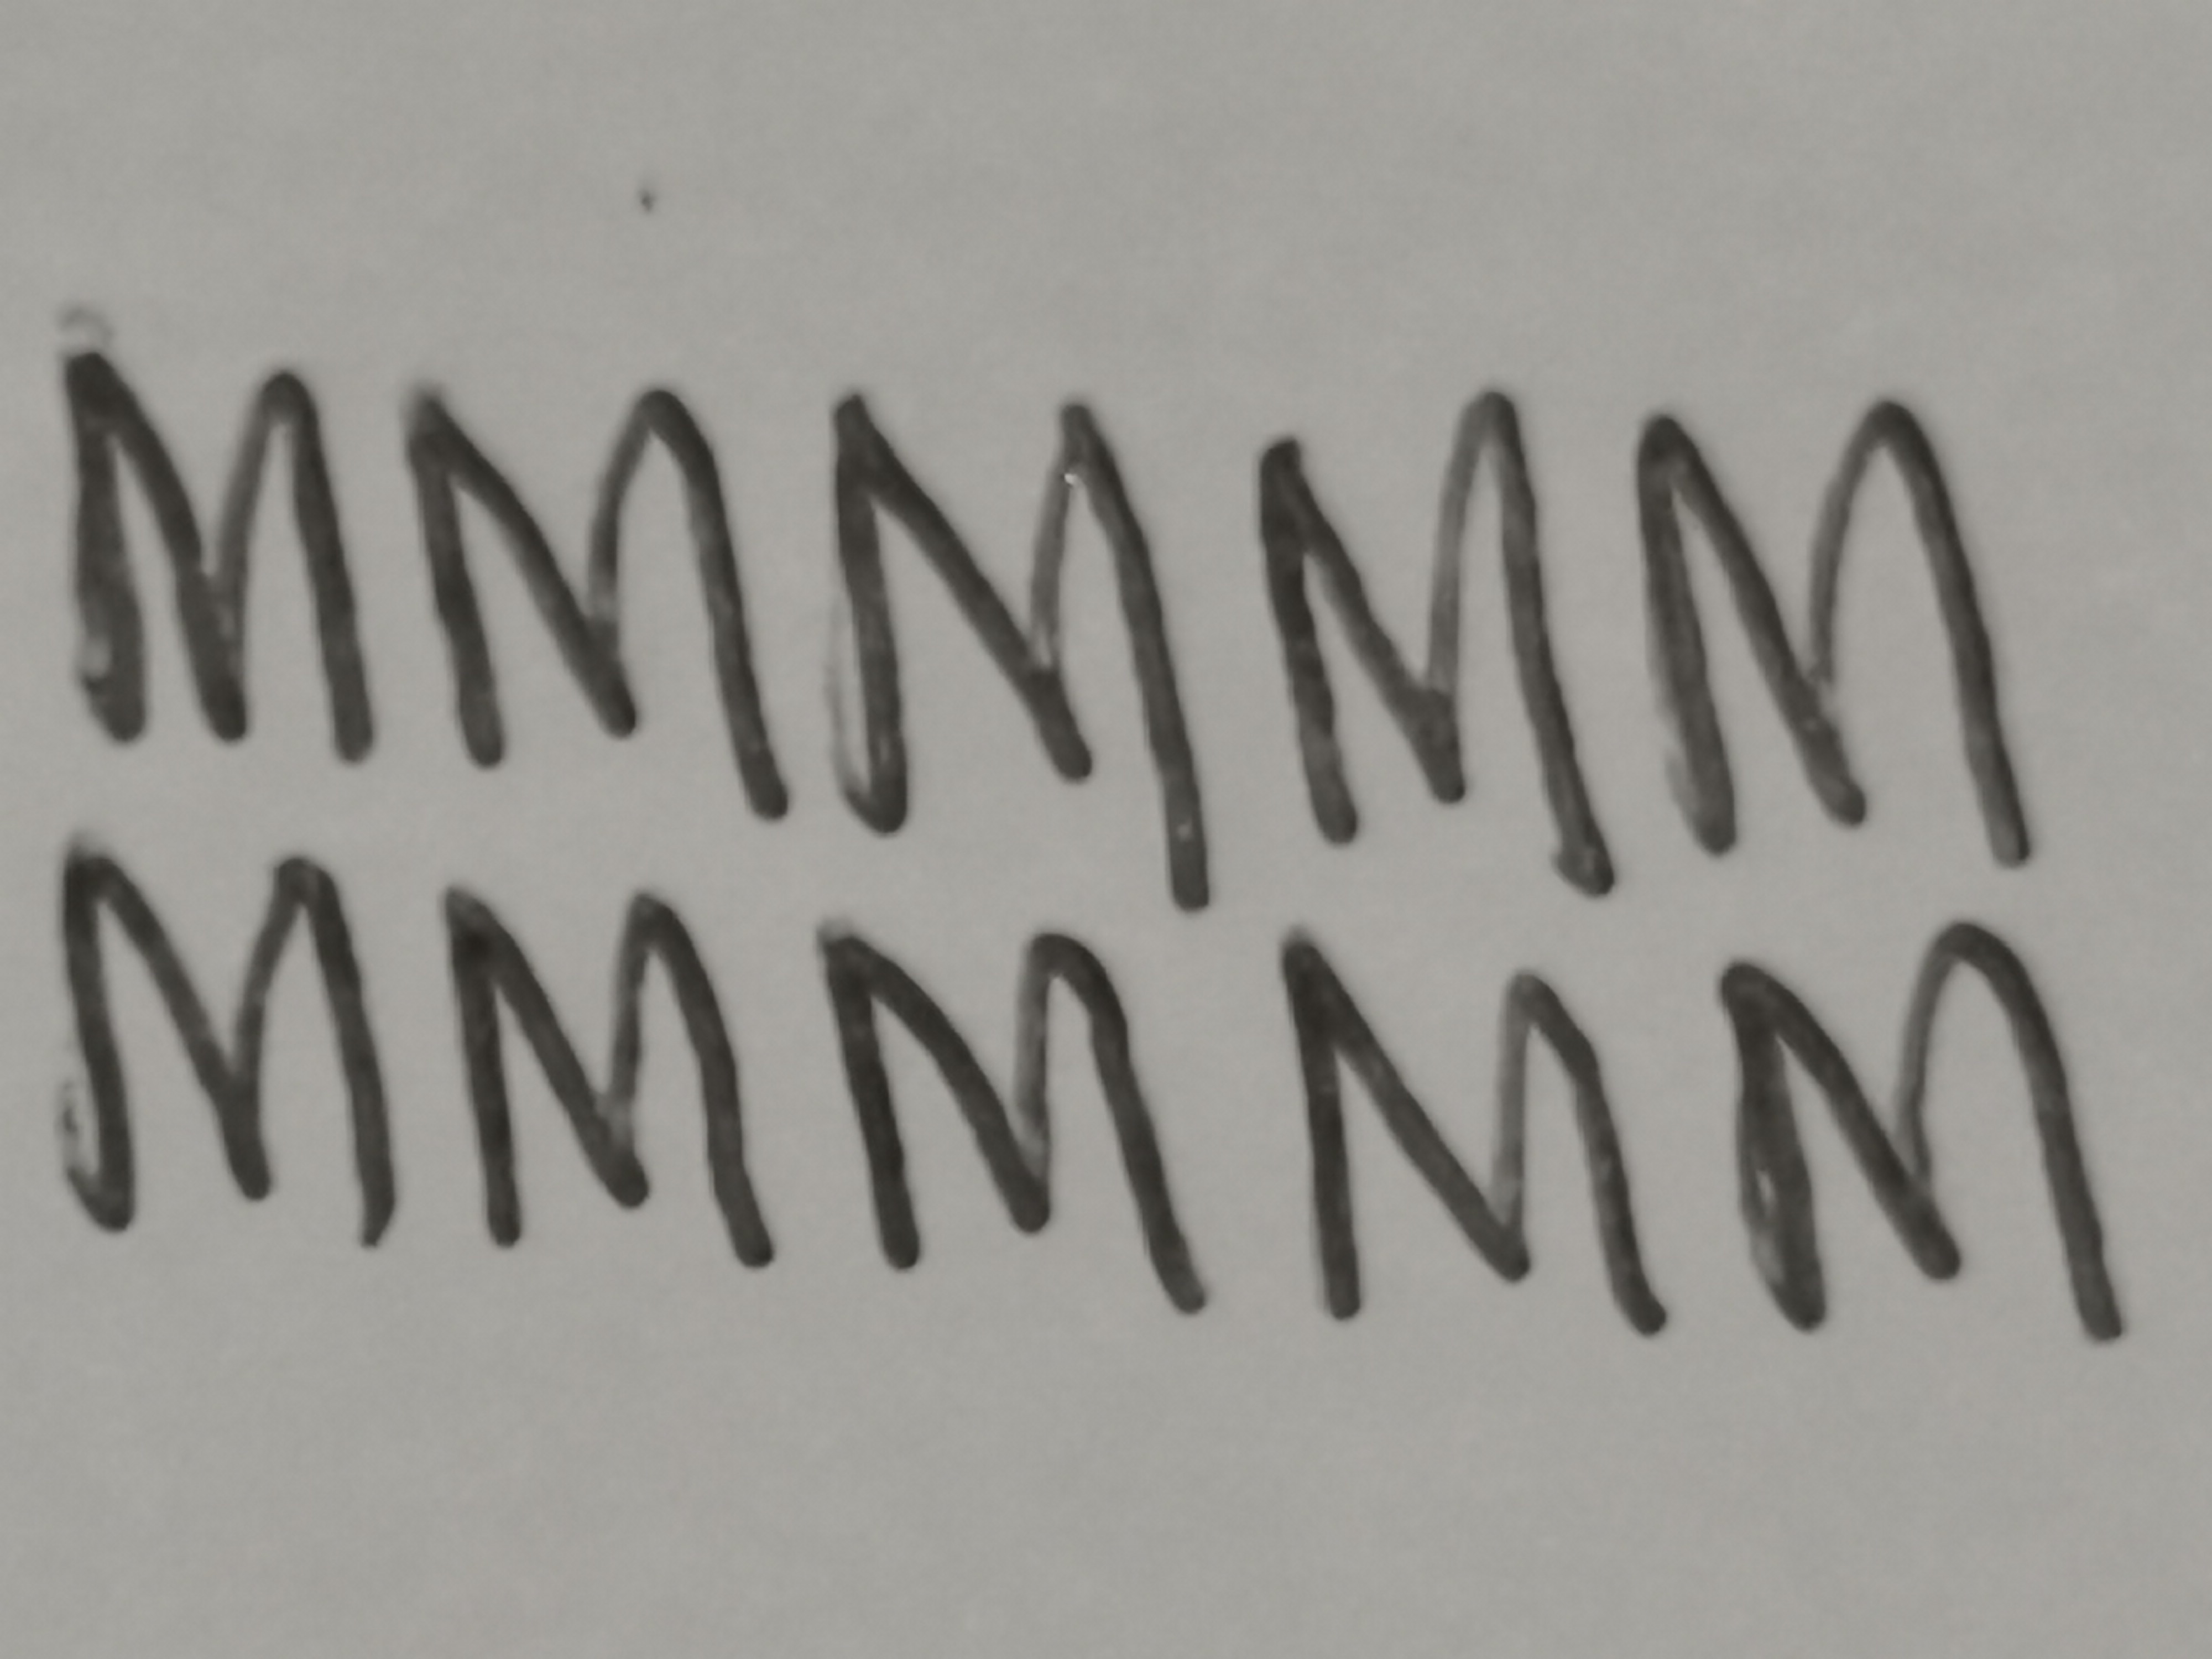 MMMMM
MMMMM